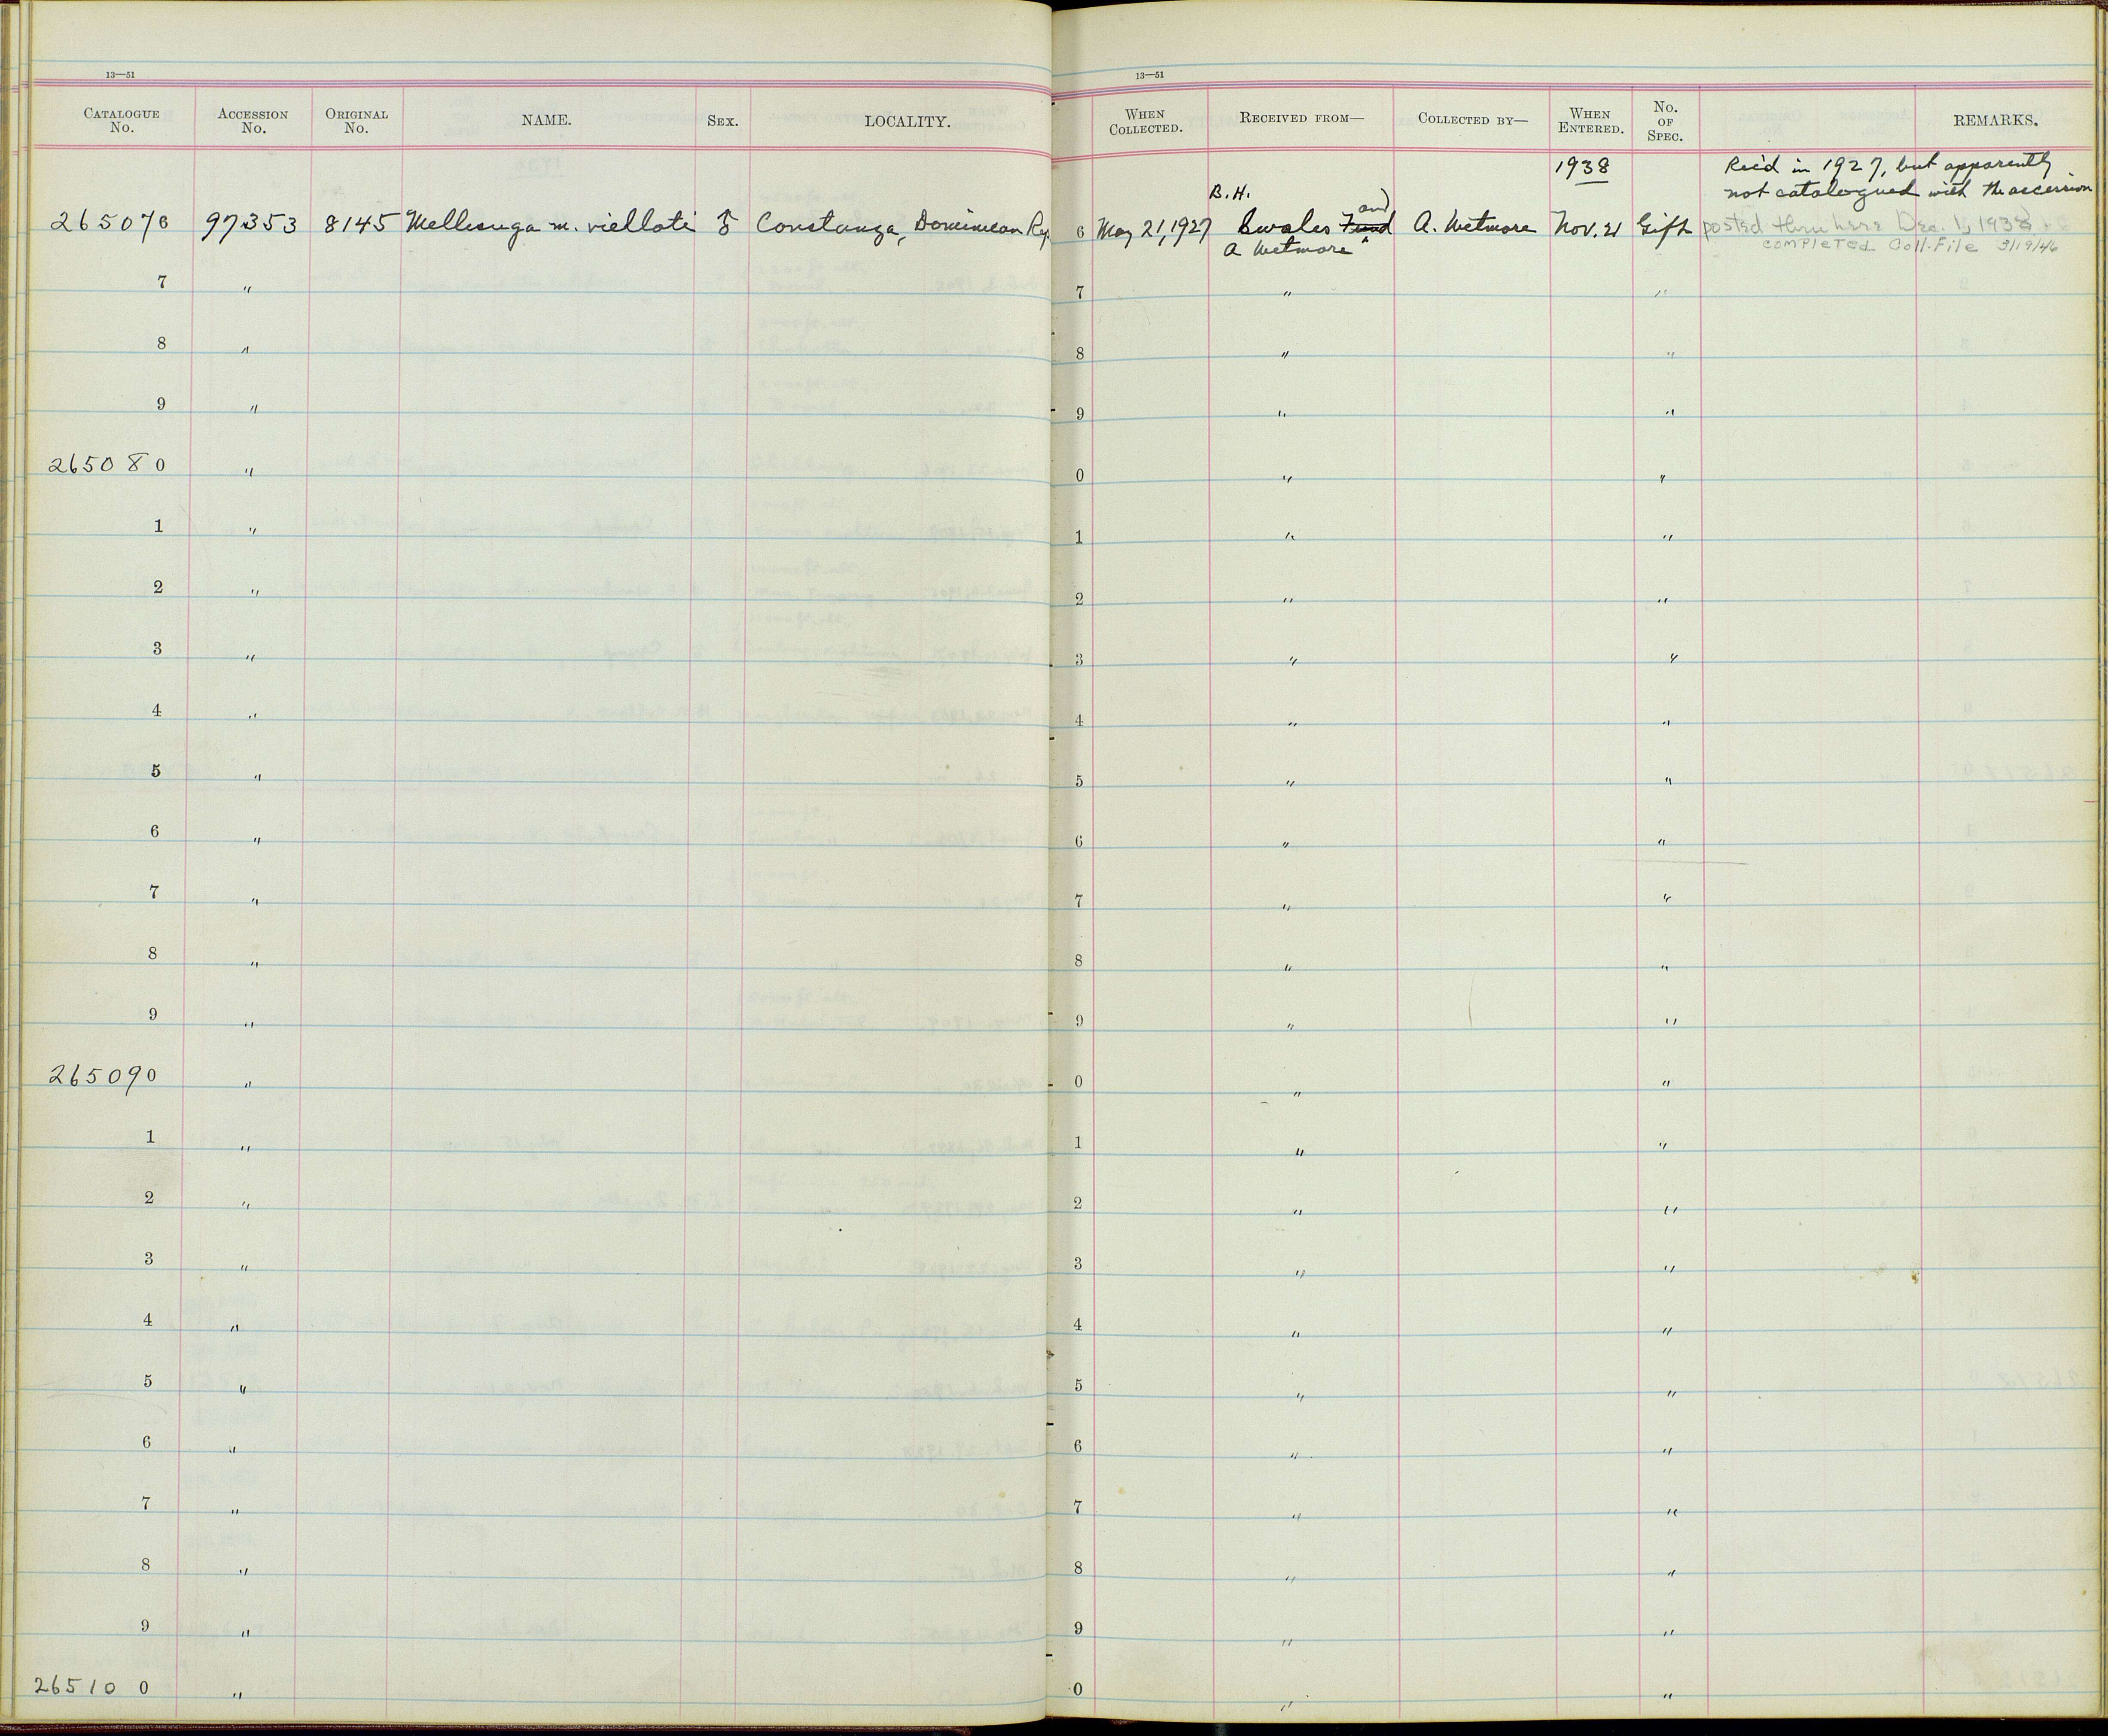 13—51
CATALOGUE No. ACCESSION No. ORIGINAL No. NAME. SEX. LOCALITY.
265076 97353 8145 Mellisuga m. vielloti ♂ Constanza, Dominican Rep.
7 "
8 "
9 "
265080 "
1 "
2 "
3 "
4 "
5 "
6 "
7 "
8 "
9 "
265090 "
1 "
2 "
3 "
4 "
5 "
6 "
7 "
8 "
9 "
265100 "
13—51
WHEN COLLECTED. RECEIVED FROM— COLLECTED BY— WHEN ENTERED. No. OF SPEC. REMARKS.
1938 Rec'd in 1927, but apparently
B.H. and not catalogued with the accession
6 May 21, 1927 Swales Fund A. Wetmore Nov. 21 Gift posted thru here Dec. 1, 1938
A Wetmore completed Coll. File 3/19/46
7 " "
8 " "
9 " "
0 " "
1 " "
2 " "
3 " "
4 " "
5 " "
6 " "
7 " "
8 " "
9 " "
0 " "
1 " "
2 " "
3 " "
4 " "
5 " "
6 " "
7 " "
8 " "
9 " "
0 " "